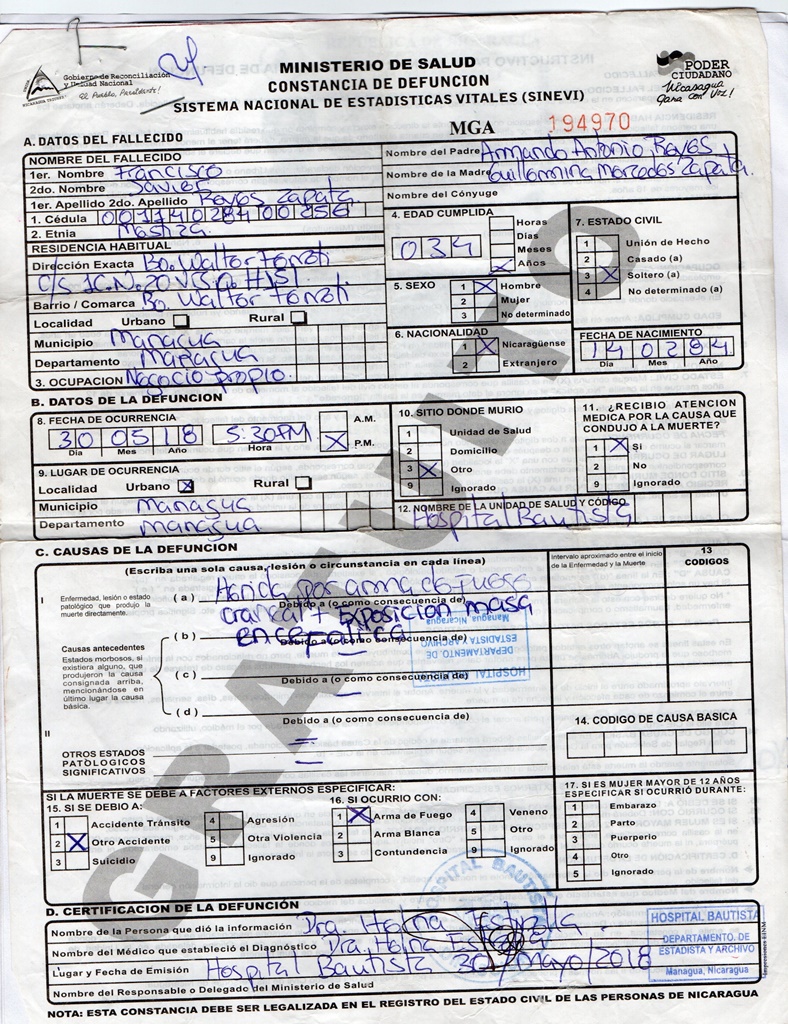 Gobierno de Reconciliación
y Unidad Nacional
El Pueblo, Presidente!
MINISTERIO DE SALUD
CONSTANCIA DE DEFUNCION
SISTEMA NACIONAL DE ESTADISTICAS VITALES (SINEVI)
PODER
CIUDADANO
Nicaragua
Gana con Vos!
MGA 194970
A. DATOS DEL FALLECIDO
NOMBRE DEL FALLECIDO
1er. Nombre Francisco
2do. Nombre Javier
1er. Apellido 2do. Apellido Reyes Zapata
1. Cédula
2. Etnia Mestiza
Nombre del Padre Armando Antonio Reyes
Nombre de la Madre Guillermina Mercedes Zapata.
Nombre del Cónyuge
RESIDENCIA HABITUAL
Dirección Exacta Bo. Walter Ferreti
Barrio / Comarca Bo. Walter Ferreti
Localidad Urbano Rural
Municipio Managua
Departamento Managua
3. OCUPACION Negocio propio.
4. EDAD CUMPLIDA
034
Horas
Días
Meses
X Años
5. SEXO
1 X Hombre
2 Mujer
3 No determinado
6. NACIONALIDAD
1 X Nicaragüense
2 Extranjero
7. ESTADO CIVIL
1 Unión de Hecho
2 Casado (a)
3 X Soltero (a)
4 No determinado (a)
FECHA DE NACIMIENTO
140284
Dia Mes Año
B. DATOS DE LA DEFUNCION
8. FECHA DE OCURRENCIA
300518 5:30PM
Dia Mes Año Hora
A.M.
X P.M.
9. LUGAR DE OCURRENCIA
Localidad Urbano X Rural
Municipio Managua
Departamento managua
10. SITIO DONDE MURIO
1 Unidad de Salud
2 Domicilio
3 X Otro
9 Ignorado
11. ¿RECIBIO ATENCION
MEDICA POR LA CAUSA QUE
CONDUJO A LA MUERTE?
1 X Si
2 No
9 Ignorado
12. NOMBRE DE LA UNIDAD DE SALUD Y CÓDIGO
Hospital Bautista
C. CAUSAS DE LA DEFUNCION
(Escriba una sola causa, lesión o circunstancia en cada línea)
Intervalo aproximado entre el inicio
de la Enfermedad y la Muerte
13
CODIGOS
I
Enfermedad, lesión o estado
patológico que produjo la
muerte directamente.
(a) Herida por arma de fuego
Debido a (o como consecuencia de)
craneal + Exposicion masa
(b) encefalica
Debido a (o como consecuencia de)
Causas antecedentes
Estados morbosos, si
existiera alguno, que
produjeron la causa
consignada arriba,
mencionándose en
último lugar la causa
básica.
(c)
Debido a (o como consecuencia de)
(d)
Debido a (o como consecuencia de)
HOSPITAL
DEPARTAMENTO DE
ESTADISTA Y ARCHIVO
Managua, Nicaragua
II
OTROS ESTADOS
PATOLOGICOS
SIGNIFICATIVOS
14. CODIGO DE CAUSA BASICA
SI LA MUERTE SE DEBE A FACTORES EXTERNOS ESPECIFICAR:
15. SI SE DEBIO A:
1 Accidente Tránsito
2 X Otro Accidente
3 Suicidio
4 Agresión
5 Otra Violencia
9 Ignorado
16. SI OCURRIO CON:
1 X Arma de Fuego
2 Arma Blanca
3 Contundencia
4 Veneno
5 Otro
9 Ignorado
17. SI ES MUJER MAYOR DE 12 AÑOS
ESPECIFICAR SI OCURRIÓ DURANTE:
1 Embarazo
2 Parto
3 Puerperio
4 Otro
5 Ignorado
GRATUITO
HOSPITAL BAUTISTA
D. CERTIFICACION DE LA DEFUNCIÓN
Nombre de la Persona que dió la información Dra.
Nombre del Médico que estableció el Diagnóstico Dra.
Lugar y Fecha de Emisión Hospital Bautista 30/mayo/2018
Nombre del Responsable o Delegado del Ministerio de Salud
HOSPITAL BAUTISTA
DEPARTAMENTO. DE
ESTADISTA Y ARCHIVO
Managua, Nicaragua
NOTA: ESTA CONSTANCIA DEBE SER LEGALIZADA EN EL REGISTRO DEL ESTADO CIVIL DE LAS PERSONAS DE NICARAGUA